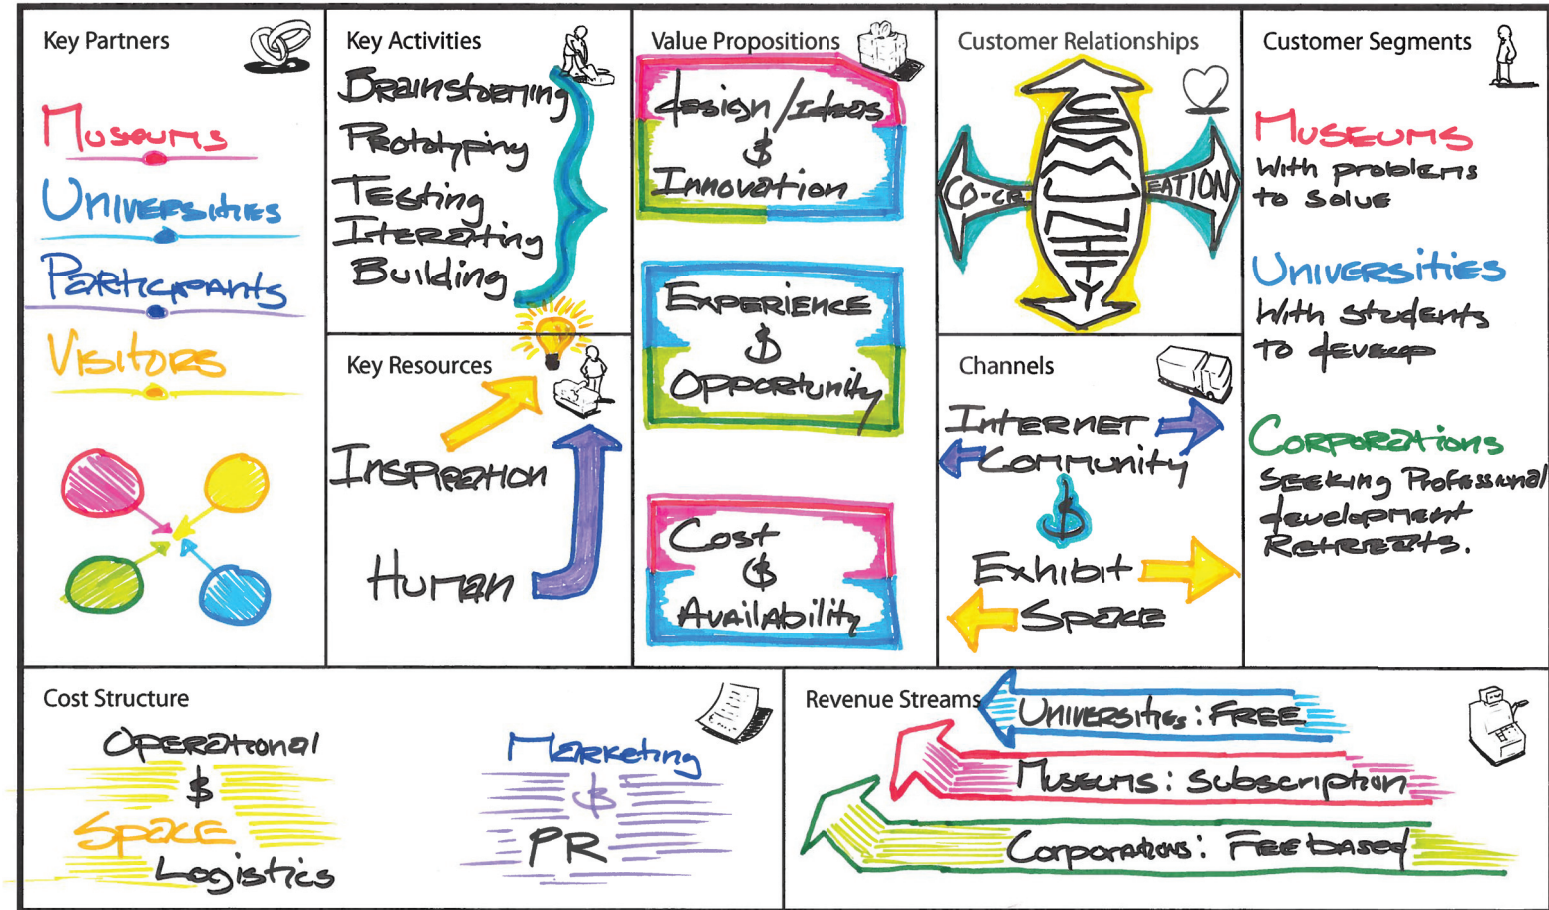 Key Partners
Museums
Universities
Participants
Visitors
Key Activities
Brainstorming
Prototyping
Testing
Iterating
Building
Key Resources
Inspiration
Human
Value Propositions
design/Ideas
&
Innovation
Experience
&
Opportunity
Cost
&
Availability
Customer Relationships
COMMUNITY
CO-CREATION
Channels
Internet
Community
&
Exhibit
Space
Customer Segments
Museums
With problems
to solve
Universities
With students
to develop
Corporations
Seeking Professional
development
Retreats.
Cost Structure
Operational
&
Space
Logistics
Marketing
&
PR
Revenue Streams
Universities: FREE
Museums: Subscription
Corporations: Fee based